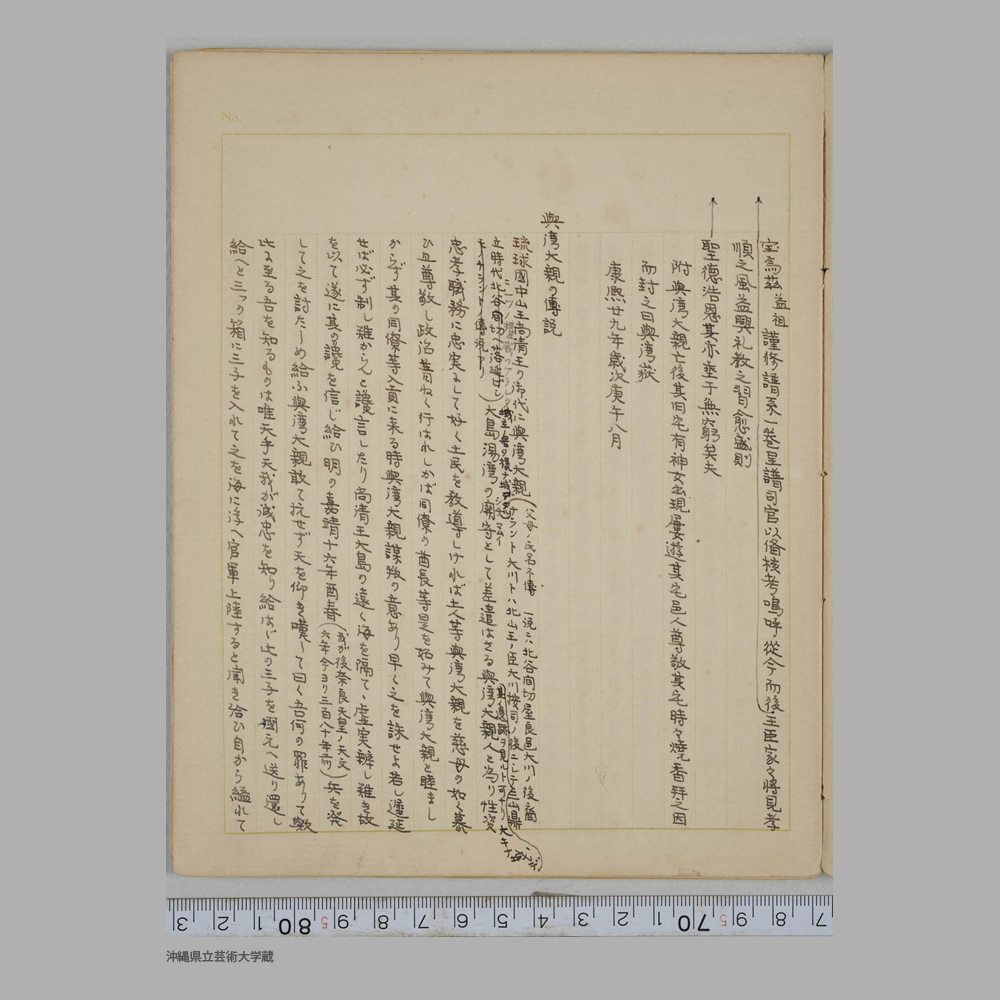 宝為茲益祖謹修譜系一巻呈譜司官以備核考嗚呼従今而後王臣家々将見孝
順之風益興礼教之習愈盛則
聖徳浩恩其亦垂于無窮矣夫
附與湾大親亡後其旧宅有神女出現屢遊其宅邑人尊敬其宅時々焼香拜之因
而封之曰與湾嶽
康熈廿九年歳次庚午八月
與湾大親の傳説
琉球國中山王尚清王の御代に與湾大親(父母ノ氏名不傳 一説ニハ北谷間切屋良邑大川ノ後裔
ナラント大川トハ北山王ノ臣大川按司ノ後ニシテ
立時代北谷間切ヘ落延ビシ
モノナラントノ傳説アリ)大島湯湾の
として差遣はさる與湾大親人と為り性資
忠孝職務に忠実にして好く土民を教導しければ土人等與湾大親を慈母の如く慕
ひ且尊敬し政治普ねく行はれしかば同僚の酋長等是を妬みて與湾大親と睦まし
からず其の同僚等入貢に来る時與湾大親謀叛の意あり早く之を誅せよ若し遷延
せば必ず制し難からんと讒言したり尚清王大島の遠く海を隔てゝ虚実辨し難き故
を以て遂に其の讒を信じ給ひ明の嘉靖十六年酉春(我が後奈良天皇ノ天文
六年今ヨリ三百八十年前)兵を発
して之を討たしめ給ふ與湾大親敢て抗せず天を仰き嘆して曰く吾何の罪ありて歟
此に至る吾を知るものは唯天乎天我が誠忠を知り給はゞ此の三子を國元へ送り還し
給へと三つの箱に三子を入れて之を海に浮へ官軍上陸すると聞き給ひ自から縊れて
No.
3 2 1 80 9 8 7 6 5 4 3 2 1 70 9 8 7
沖縄県立芸術大学蔵